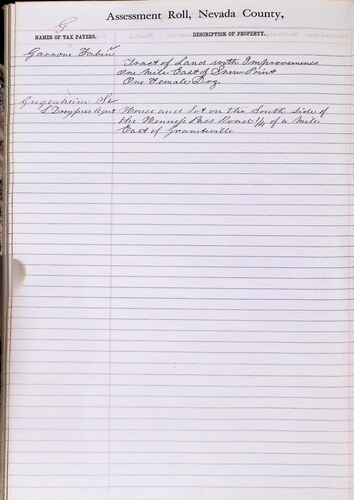 G
Assessment Roll, Nevada County,
NAMES OF TAX PAYERS.
DESCRIPTION OF PROPERTY.
Tract of Land with Improvements
One Mile East of Snow Point
One Female Dog
L Dreyfuss Agent
House and Lot on the South side of
the Henness Pass Road 1/4 of a Mile
East of Graniteville